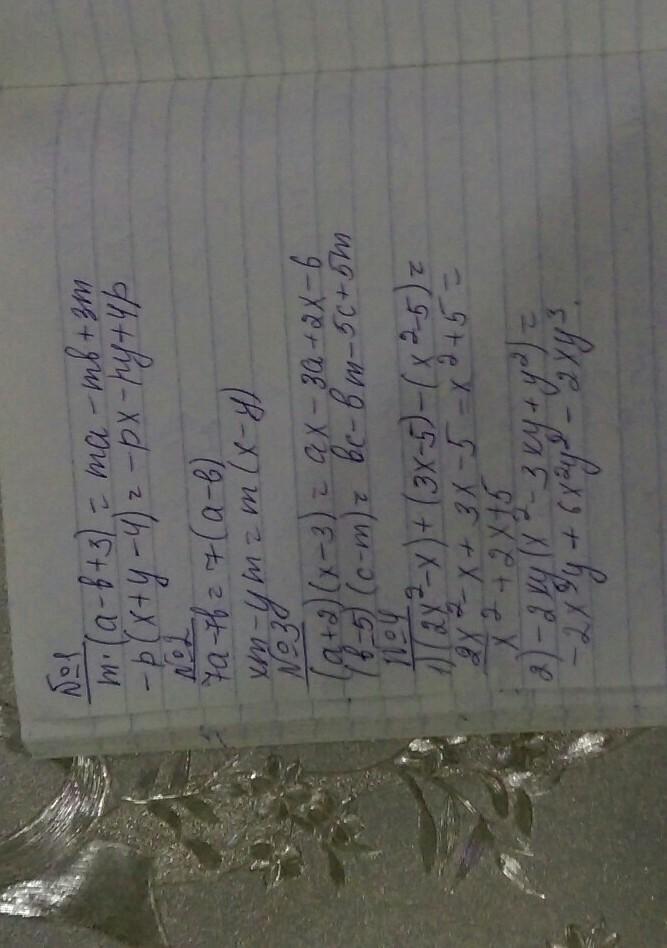 №1
m·(a-b+3) = ma-mb+3m
-p(x+y-4) = -px-py+4p
№2
7a-7b = 7(a-b)
xm-ym = m(x-y)
№3
(a+2)(x-3) = ax-3a+2x-6
(b-5)(c-m) = bc-bm-5c+5m
№4
1)(2x²-x)+(3x-5)-(x²-5) =
2x²-x+3x-5=x²+5 =
x²+2x+5
2)-2xy(x²-3xy+y²) =
-2x³y+6x²y²-2xy³.